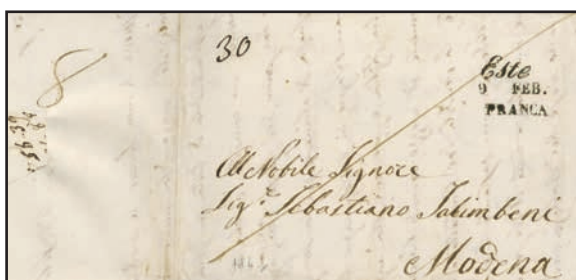 30
Este
9 FEB.
FRANCA
8
Al Nobile Signore
Sig.r Sebastiano Salimbeni
Modena